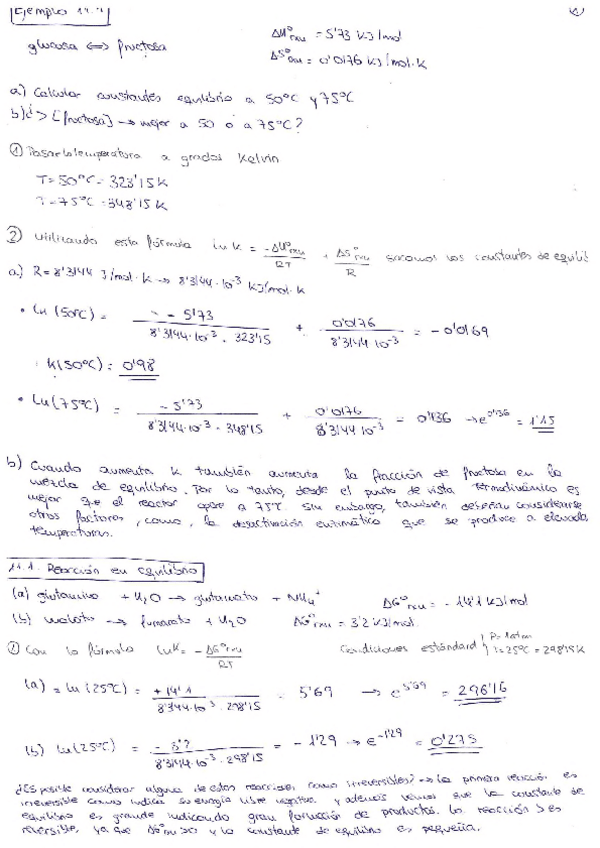 Ejemplo 11.1
glucosa ⇔ fructosa
ΔH°rxn = 5'73 kJ/mol
ΔS°rxn = 0'0176 kJ/mol·K
a) Calcular constantes equilibrio a 50°C y 75°C
b) ¿> [fructosa] → mejor a 50 o a 75°C?
① Pasar la temperatura a grados Kelvin
T = 50°C = 323'15 K
T = 75°C = 348'15 K
② Utilizando esta fórmula ln K = -ΔH°rxn/RT + ΔS°rxn/R sacamos las constantes de equilib
a) R = 8'3144 J/mol·K → 8'3144·10⁻³ kJ/mol·K
• Ln (50°C) = - - 5'73 / 8'3144·10⁻³ · 323'15 + 0'0176 / 8'3144 10⁻³ = - 0'0169
K(50°C) = 0'98
• Ln (75°C) = - 5'73 / 8'3144·10⁻³ · 348'15 + 0'0176 / 8'3144 10⁻³ = 0'136 → e^0'136 = 1'15
b) Cuando aumenta K también aumenta la fracción de fructosa en la
mezcla de equilibrio. Por lo tanto, desde el punto de vista termodinámico es
mejor que el reactor opere a 75°C. Sin embargo, también deberían considerarse
otros factores, como, la desactivación enzimática que se produce a elevada
temperaturas.
11.1. Reacción en equilibrio
(a) glutamina + H₂O → glutamato + NH₄⁺ ΔG°rxn = - 14'1 kJ/mol
(b) malato → fumarato + H₂O ΔG°rxn = 3'2 kJ/mol.
① Con la fórmula Ln K = - ΔG°rxn/RT Condiciones estándard { P = 1 atm T = 25°C = 298'15 K
(a) = Ln (25°C) = + 14'1 / 8'3144·10⁻³ · 298'15 = 5'69 → e^5'69 = 296'16
(b) Ln(25°C) = - 3'2 / 8'3144·10⁻³ · 298'15 = - 1'29 → e^-1'29 = 0'275
¿Es posible considerar alguna de estas reacciones como irreversibles? → La primera reacción es
irreversible como indica su energía libre negativa, y además vemos que la constante de
equilibrio es grande indicando gran formación de productos. La reacción b es
reversible, ya que ΔG°rxn>0 y la constante de equilibrio es pequeña.